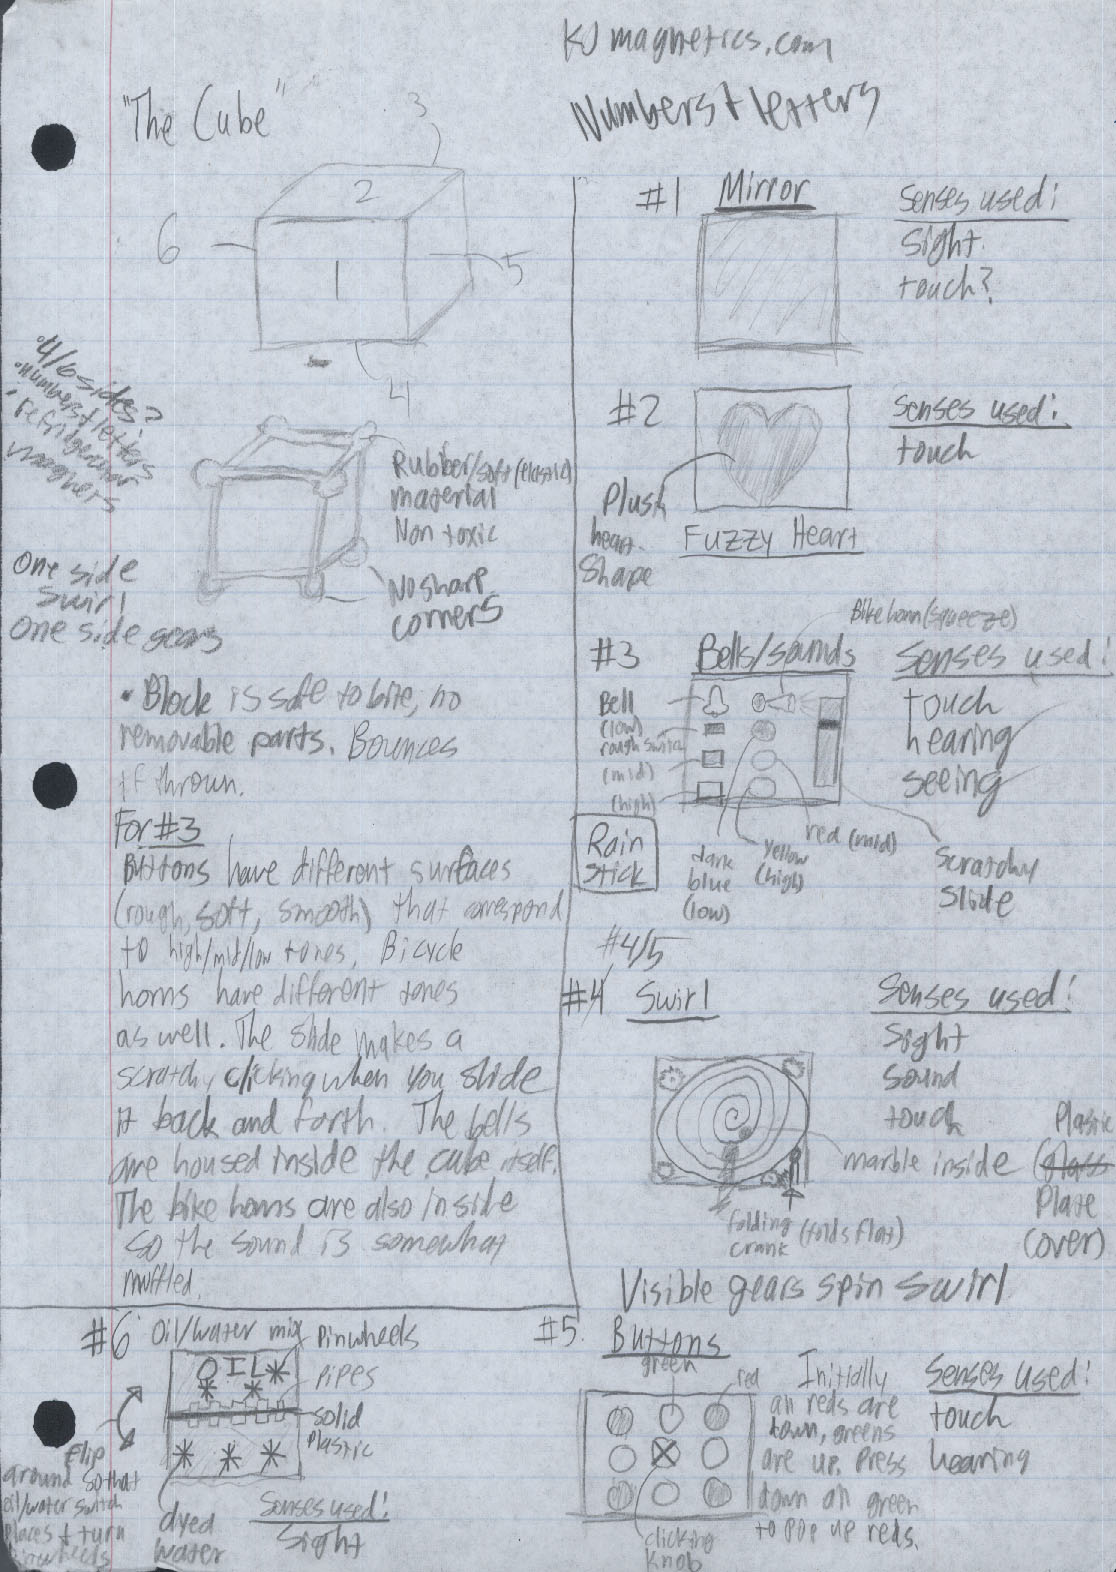 KJmagnetics.com
"The Cube"
Numbers + letters
3
2
6
1
5
4
4/6 sides?
numbers + letters
refridgerator
magnets
Rubber/soft (plastic)
material
Non toxic
No sharp
corners
One side
swirl
One side gears
• Block is safe to bite, no
removable parts. Bounces
if thrown.
For #3
Buttons have different surfaces
(rough, soft, smooth) that correspond
to high/mid/low tones, Bicycle
horns have different tones
as well. The slide makes a
scratchy clicking when you slide
it back and forth. The bells
are housed inside the cube itself.
The bike horns are also inside
so the sound is somewhat
muffled.
#1 Mirror
Senses used:
Sight
touch?
#2
Senses used:
touch
Plush
heart
Shape
Fuzzy Heart
Bike horn (squeeze)
#3 Bells/sounds
Senses used:
touch
hearing
seeing
Bell
(low)
rough switch
(mid)
(high)
Rain
Stick
dark
blue
(low)
yellow
(high)
red (mid)
Scratchy
Slide
#4/5
#4 Swirl
Senses used:
Sight
sound
touch
marble inside
Plastic
(glass
Plate
(over)
folding (folds flat)
crank
Visible gears spin swirl
#5
Buttons
green
red
Initially
all reds are
down, greens
are up. Press
down all green
to pop up reds.
clicking
knob
Senses used:
touch
hearing
#6 Oil/water mix
Pinwheels
Pipes
OIL
solid
Plastic
flip
around so that
oil/water switch
places + turn
pinwheels
dyed
water
Senses used:
Sight